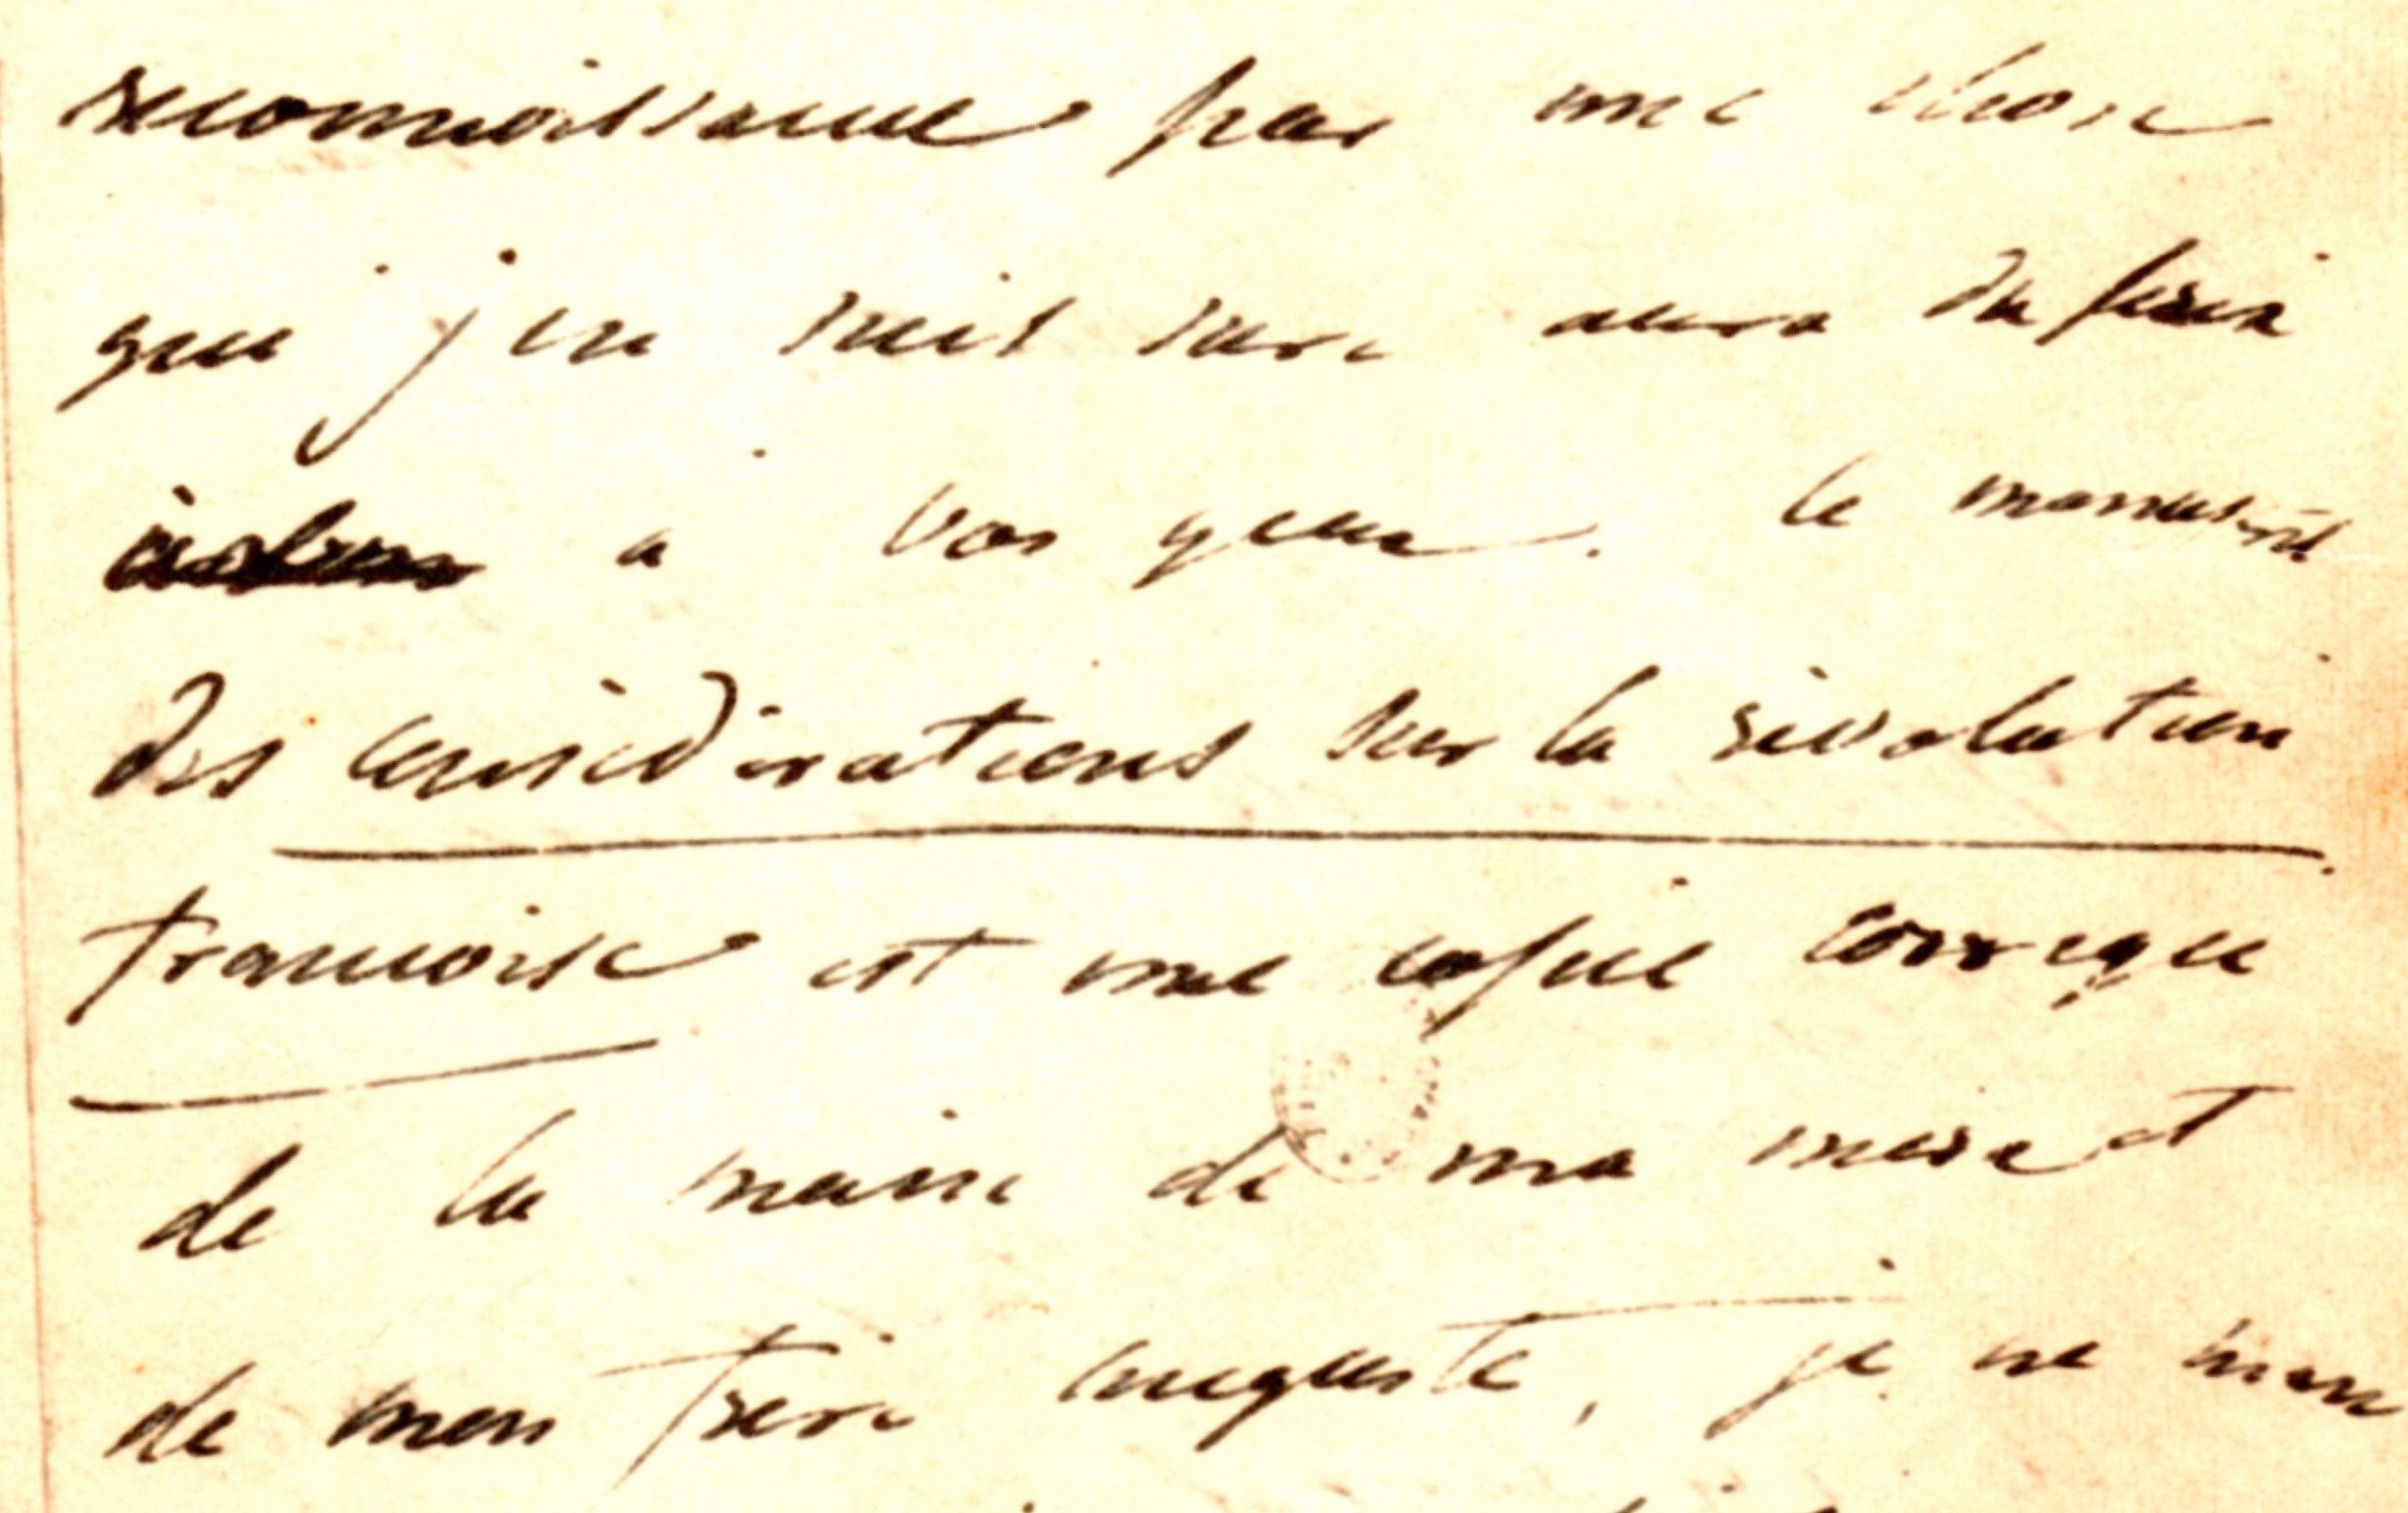 reconnoissance par une chose
que j'en suis sure aura du prix
à vos yeux. le manuscrit
des considérations sur la révolution
françoise est une copie corrigée
de la main de ma mère et
de mon frère auguste, je ne